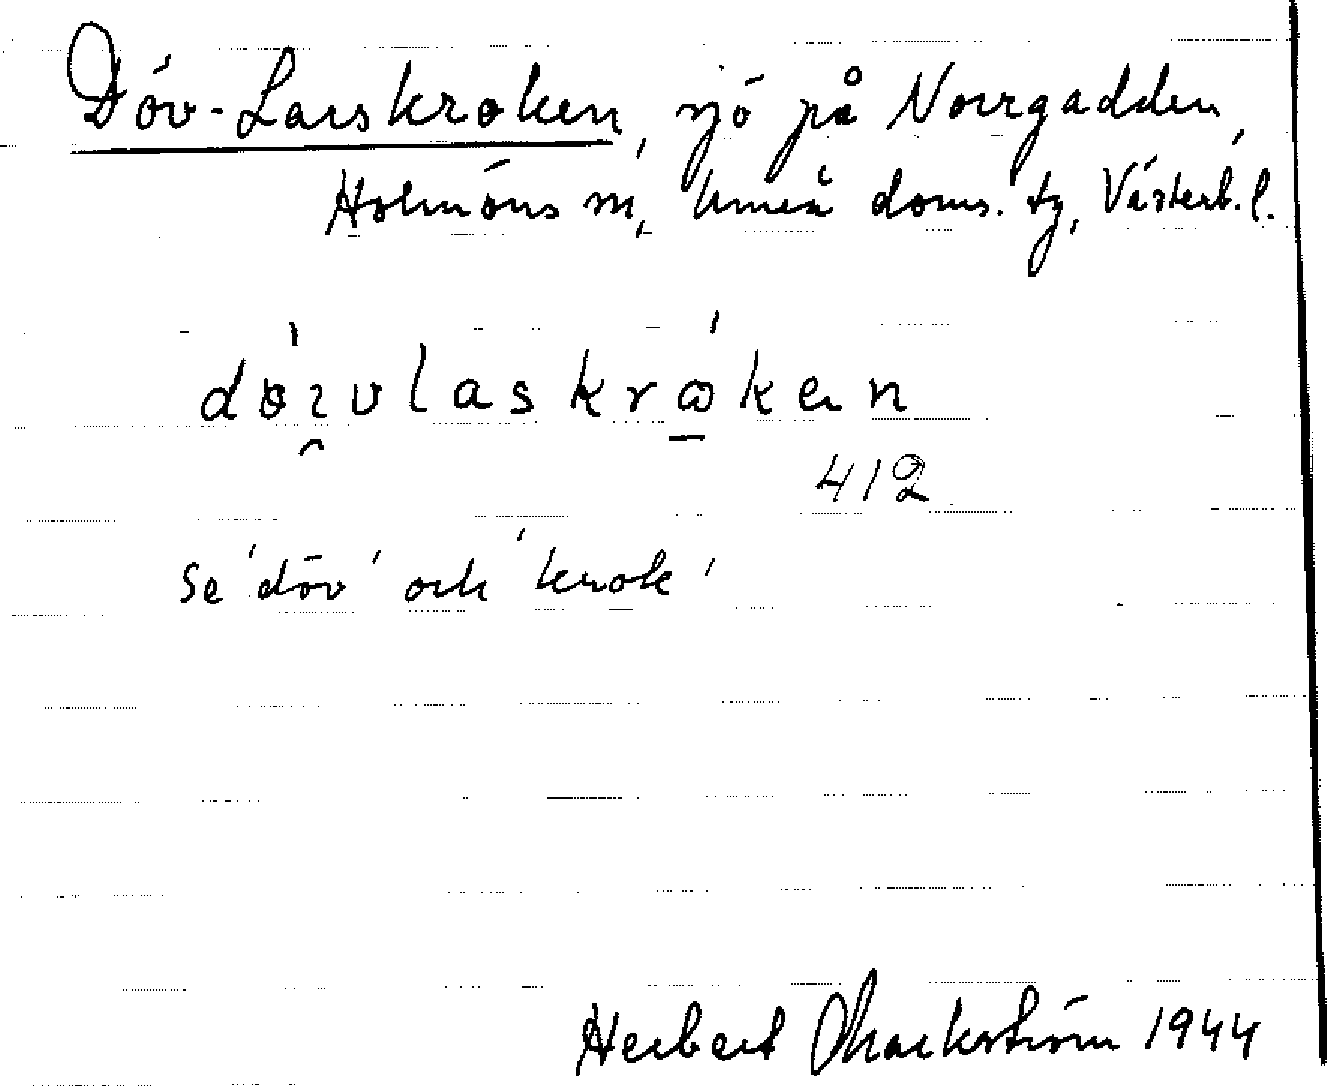 Döv-Larskroken, sjö på Norrgadden,
Holmöns sn, Umeå doms. tg, Västerb. l.
dö̀ɿvlaskrɷ̀ken
412
se 'döv' och 'krok'
Herbert Markström 1944